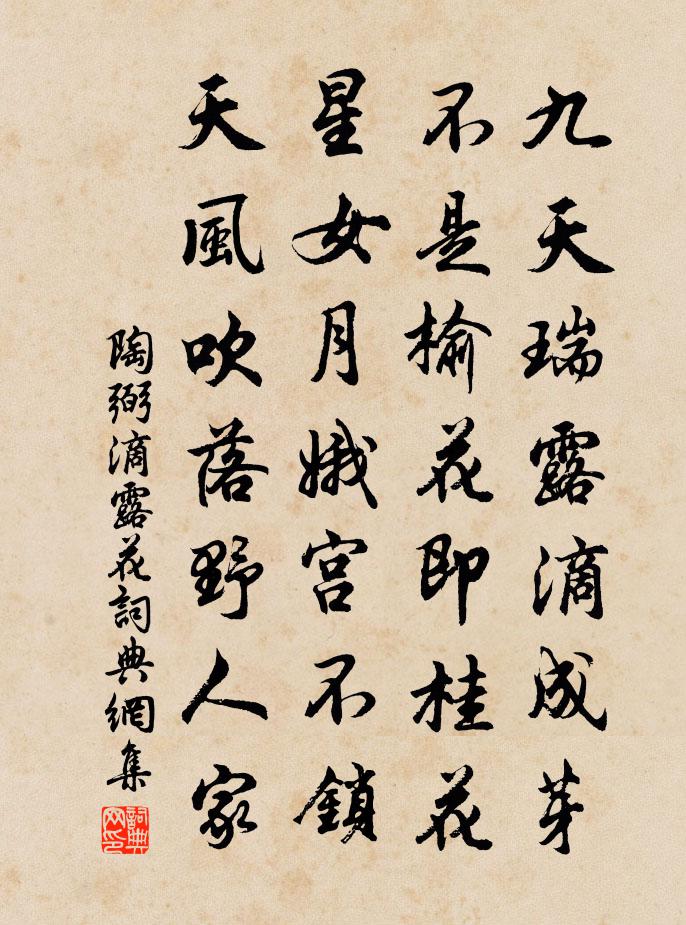 九天瑞露滴成芽
不是榆花即桂花
星女月娥宮不鎖
天風吹落野人家
陶弼滴露花詞典網集
詞典网印